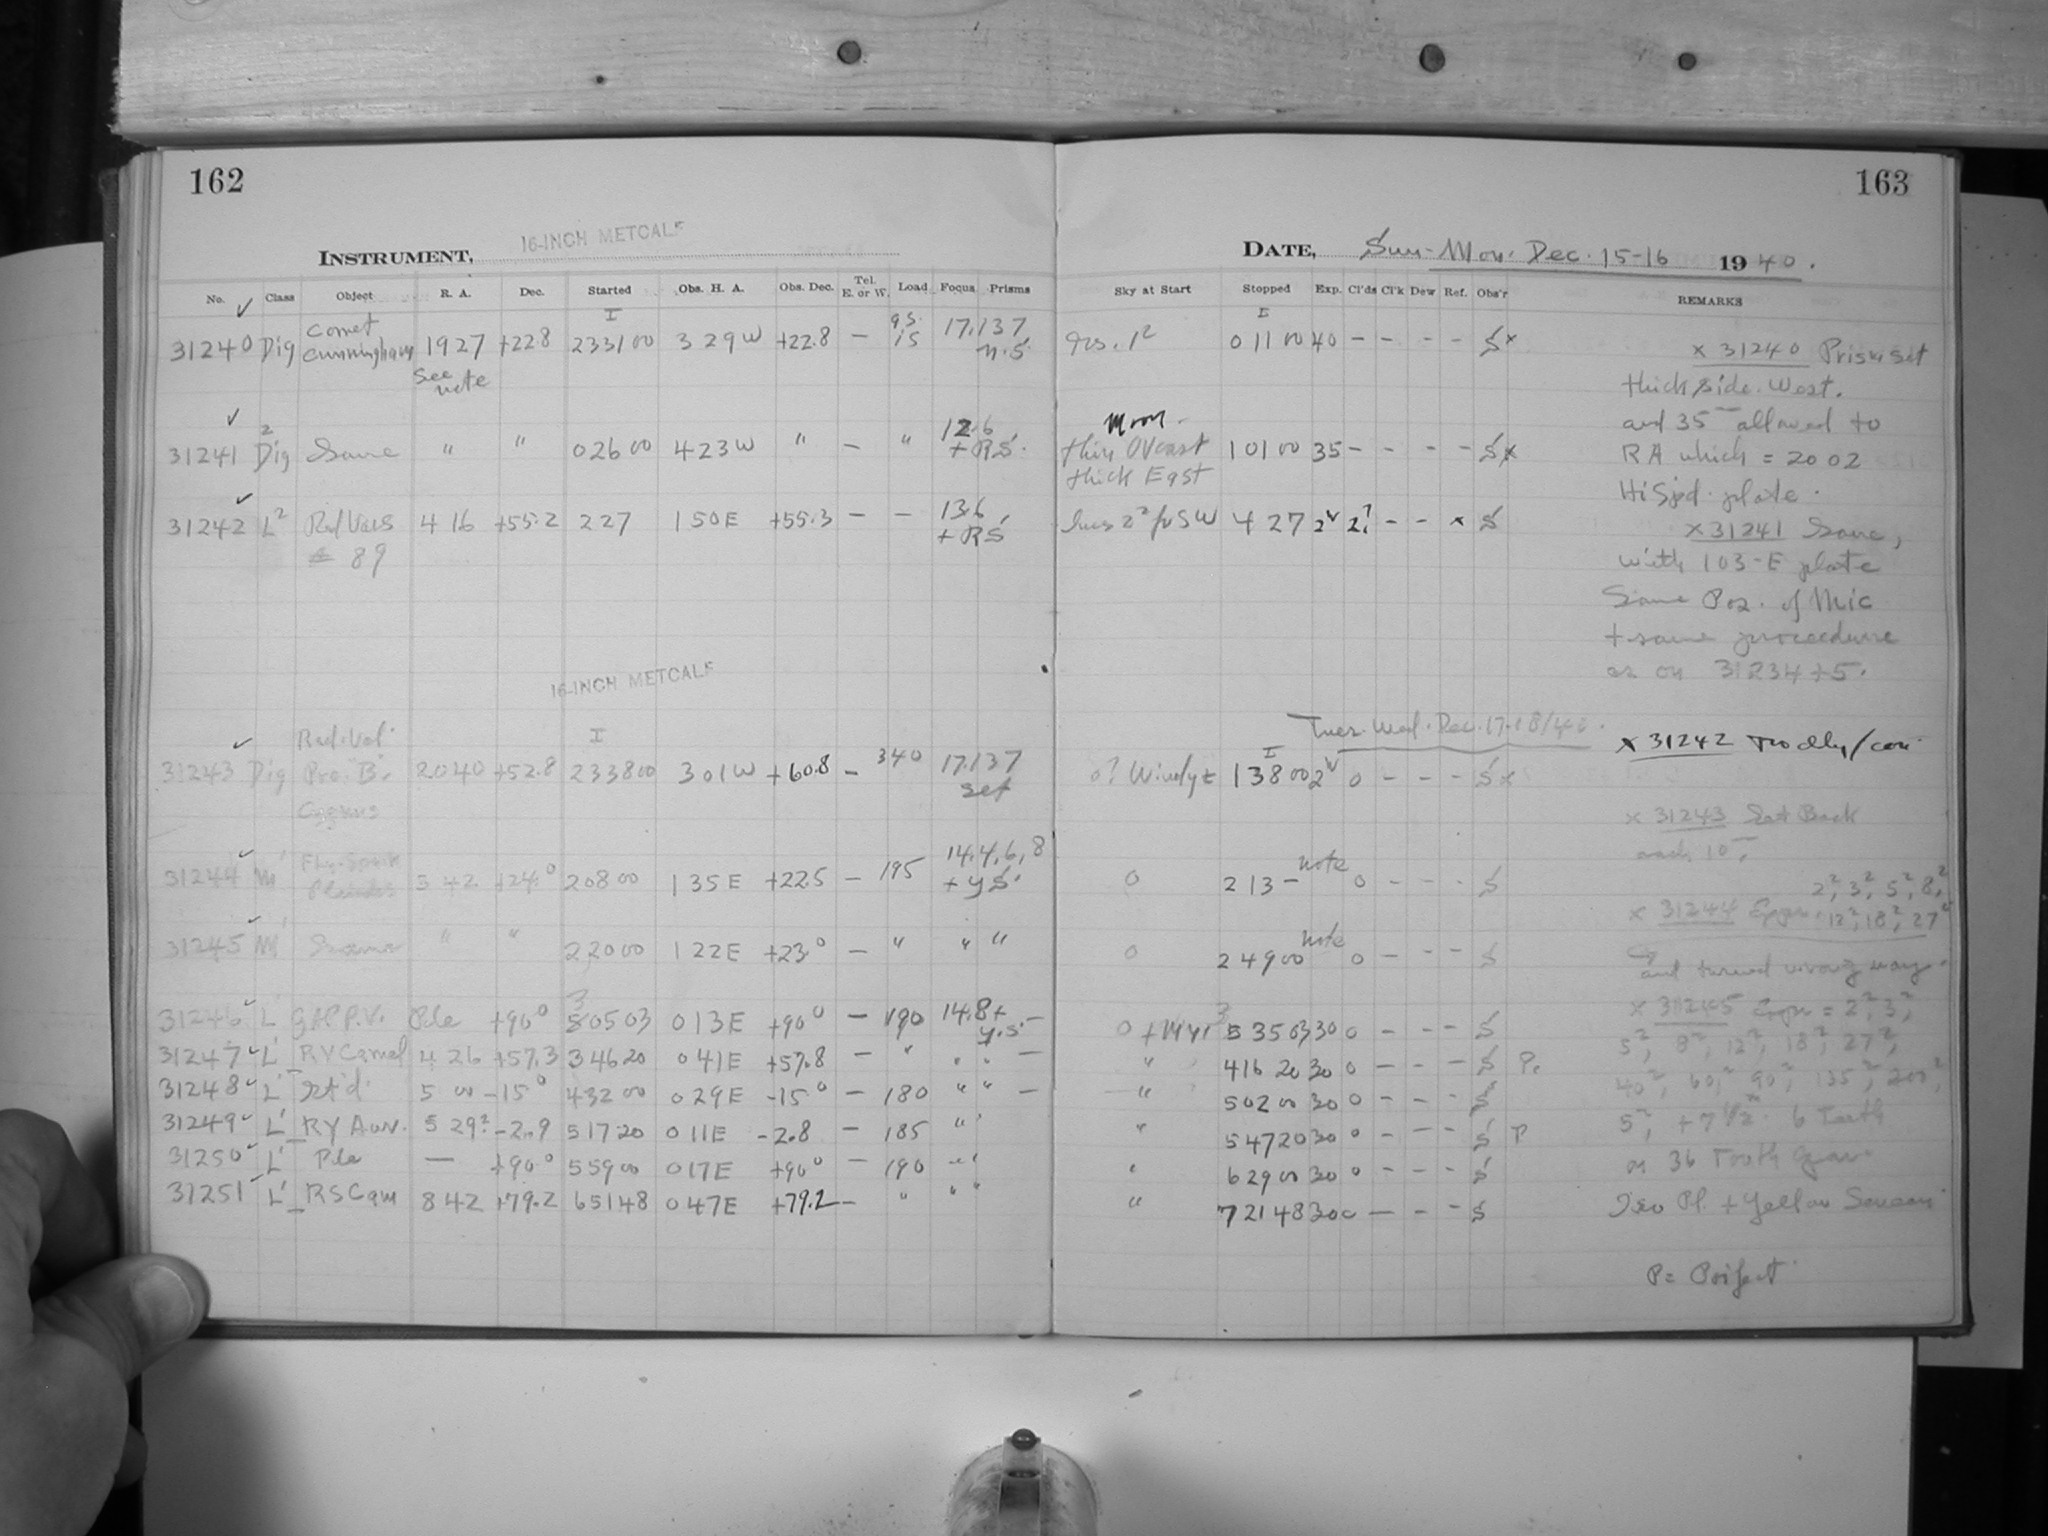 162
163
16-INCH METCALF
INSTRUMENT,
DATE, Sun-Mon. Dec. 15-16 1940.
No. Class Object R. A. Dec. Started Obs. H. A. Obs. Dec. Tel. E. or W. Load Focus Prisms
Sky at Start Stopped Exp. Cl'ds Cl'k Dew Ref. Obs'r REMARKS
31240 Dig Comet Cunningham 1927 +22.8 233100 329W +22.8 — 17.137 011100 40 - - - - S x
See note
x 31240 Prism set
thick side West.
and 35 allowed to
RA which = 2002
Hi Spd. plate.
31241 Dig Same " " 02600 423W " — " 12.6 + RS. Moon - thin Ovcast thick East 10100 35 - - - - S x
31242 L² Rad Vels 89 416 +55.2 227 150E +55.3 — — 13.6 + RS 427 2 2? - - x S
x 31241 Same,
with 103-E plate
Same Pos. of Mic
+ same proceedure
as on 31234+5.
16-INCH METCALF
Tues. Wed. Dec. 17-18/40.
x 31242
31243 Dig Rad. Vel. Pro. B. Cygnus 2040 +52.8 233800 301W +60.8 — 340 17.137 set Windy 13800 2 0 - - - S x
x 31243 Set Back
each 10
31244 M' 342 +24.0 20800 135E +22.5 — 195 14.4,6,8 + YS. 0 213 - note 0 - - - S
2², 3², 5², 8²,
x 31244 Expos. 12², 18², 27²
31245 M' Same " " 22000 122E +23° — " " " 0 24900 note 0 - - - S
and turned wrong way.
x 31245 Expos = 2², 3²,
5², 8², 12², 18², 27²,
40², 60², 90², 135², 200²,
31246 L' Pole +90° 30503 013E +90° — 190 14.8+ Y.S. — 33503 30 0 - - - S
31247 L' RV Camel 426 +57.3 34620 041E +57.8 — " " " — " 41620 30 0 - - - S P.
31248 L' Std. 500 -15° 43200 029E -15° — 180 " " — " 50200 30 0 - - - S
31249 L' RY Aur. 529? -2.9 51720 011E -2.8 — 185 " " " 54720 30 0 - - - S P
31250 L' Pole — +90° 55900 017E +90° — 190 " " " 62900 30 0 - - - S
31251 L' RS Cam 842 +79.2 65148 047E +79.2 — " " " " 72148 30 0 — - - S
5², + 7 1/2 6 Tooth
on 36 Tooth Gear
Iso Pl. + Yellow Screen
P = Perfect